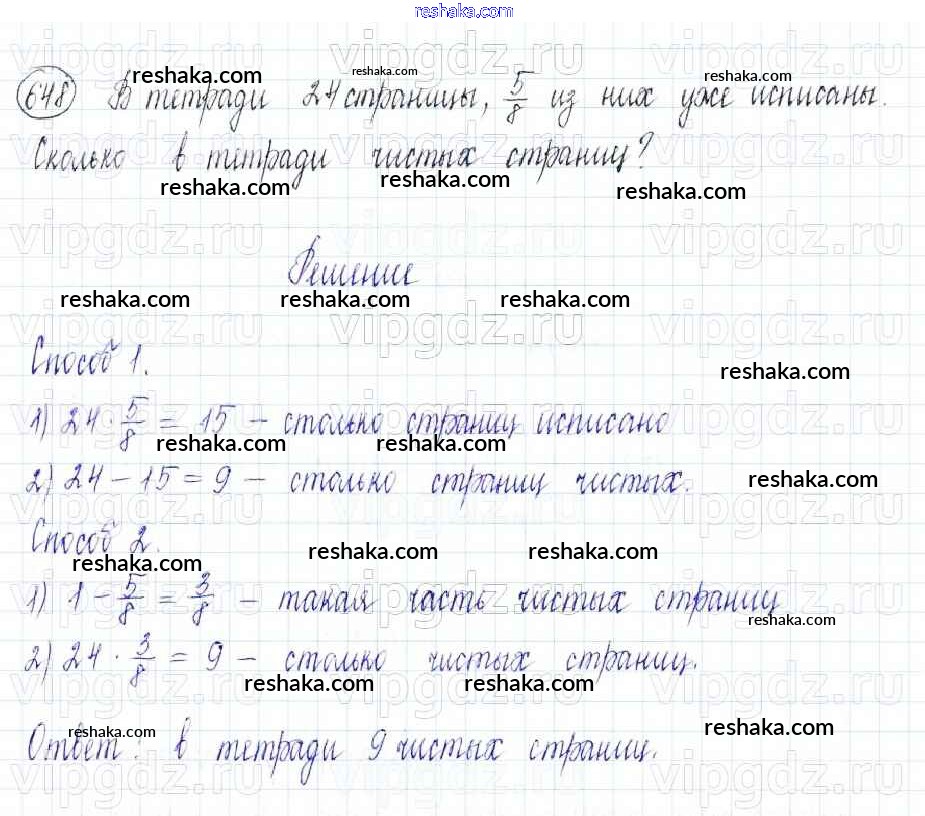 reshaka.com
648 В тетради 24 страницы, 5/8 из них уже исписаны.
Сколько в тетради чистых страниц?
Решение
Способ 1.
1) 24 · 5/8 = 15 – столько страниц исписано
2) 24 – 15 = 9 – столько страниц чистых.
Способ 2.
1) 1 – 5/8 = 3/8 – такая часть чистых страниц
2) 24 · 3/8 = 9 – столько чистых страниц.
Ответ: в тетради 9 чистых страниц.